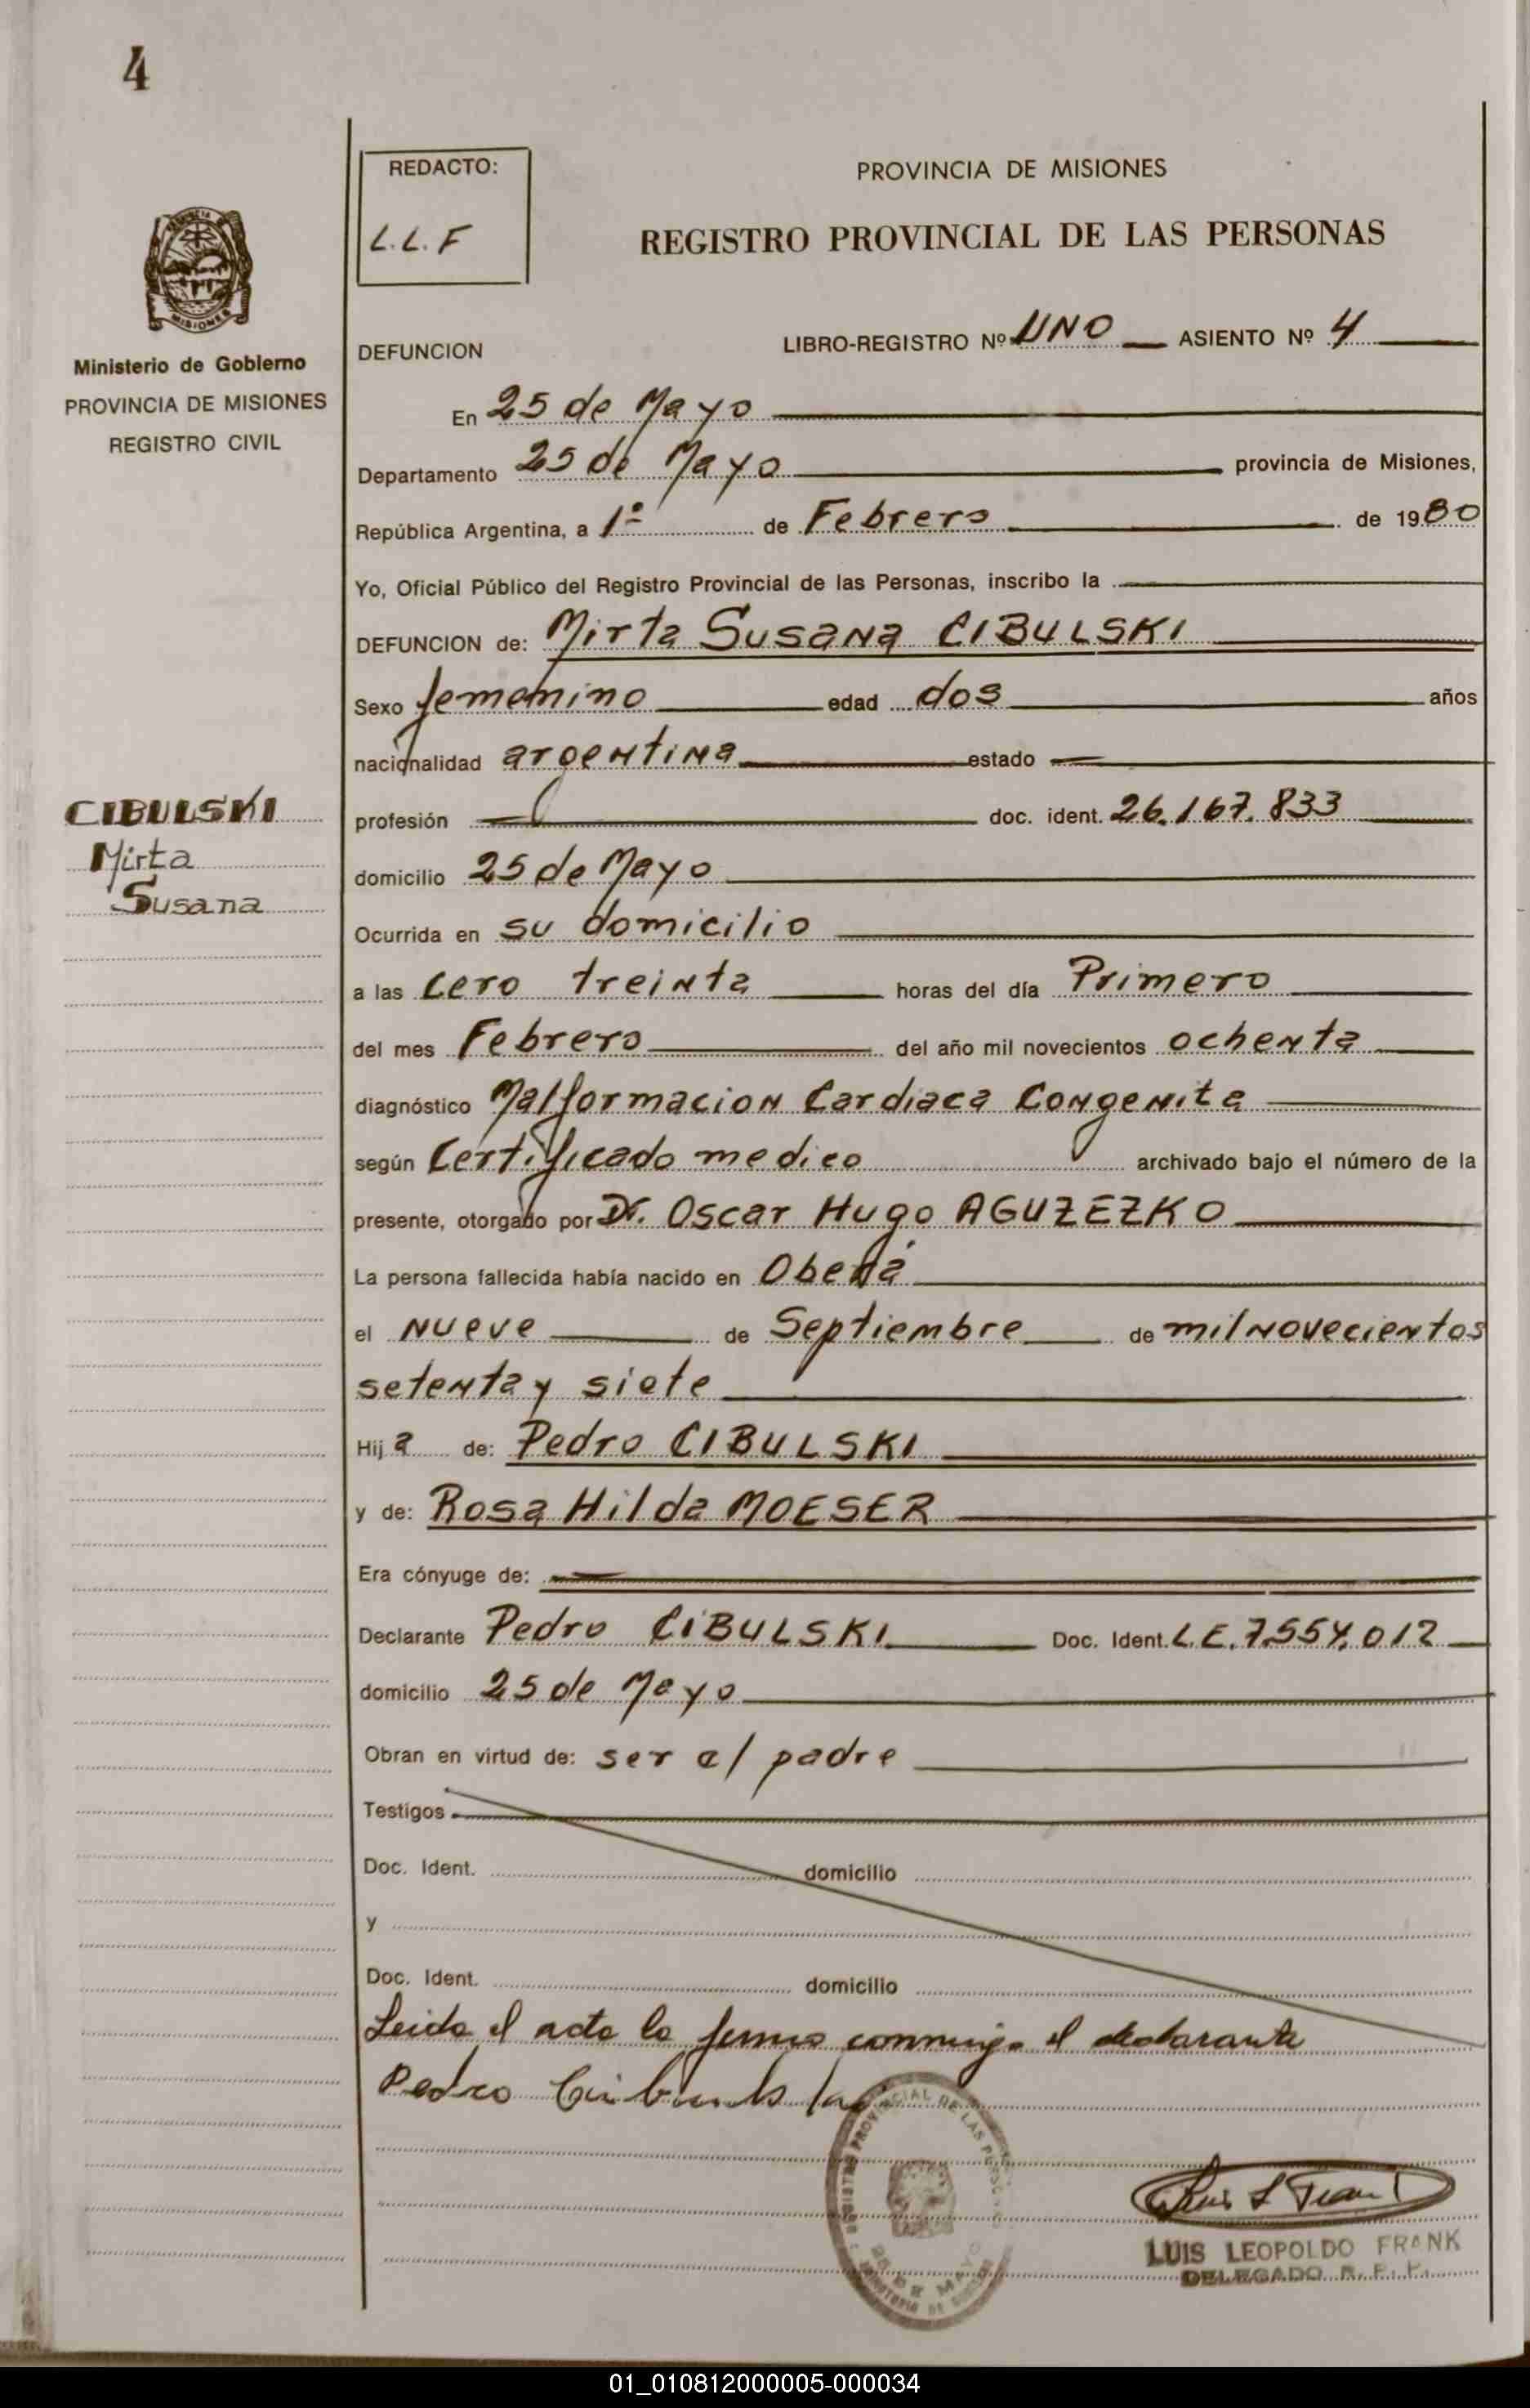 4
REDACTO:
L.L.F
PROVINCIA DE MISIONES
REGISTRO PROVINCIAL DE LAS PERSONAS
MISIONES
Ministerio de Gobierno
PROVINCIA DE MISIONES
REGISTRO CIVIL
DEFUNCION LIBRO-REGISTRO Nº UNO ASIENTO Nº 4
En 25 de Mayo
Departamento 25 de Mayo provincia de Misiones,
República Argentina, a 1º de Febrero de 1980
Yo, Oficial Público del Registro Provincial de las Personas, inscribo la
DEFUNCION de: Mirta Susana CIBULSKI
Sexo femenino edad dos años
nacionalidad argentina estado
profesión doc. ident. 26.167.833
CIBULSKI
Mirta
Susana
domicilio 25 de Mayo
Ocurrida en su domicilio
a las cero treinta horas del día Primero
del mes Febrero del año mil novecientos ochenta
diagnóstico Malformacion Cardiaca Congenita
según Certificado medico archivado bajo el número de la
presente, otorgado por Dr. Oscar Hugo AGUZEZKO
La persona fallecida había nacido en Oberá
el nueve de Septiembre de mil novecientos
setenta y siete
Hija de: Pedro CIBULSKI
y de: Rosa Hilda MOESER
Era cónyuge de:
Declarante Pedro CIBULSKI Doc. Ident. L.E. 7.554.012
domicilio 25 de Mayo
Obran en virtud de: ser el padre
Testigos
Doc. Ident. domicilio
y
Doc. Ident. domicilio
Leida el acta la firma conmigo el declarante
Pedro
REGISTRO PROVINCIAL DE LAS PERSONAS
25 DE MAYO
LUIS LEOPOLDO FRANK
DELEGADO R. P. P.
01_010812000005-000034